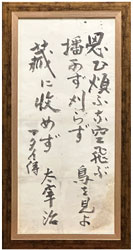 思ひ煩ふな空飛ぶ
鳥を見よ
播かず刈らず
蔵に収めず
太宰治